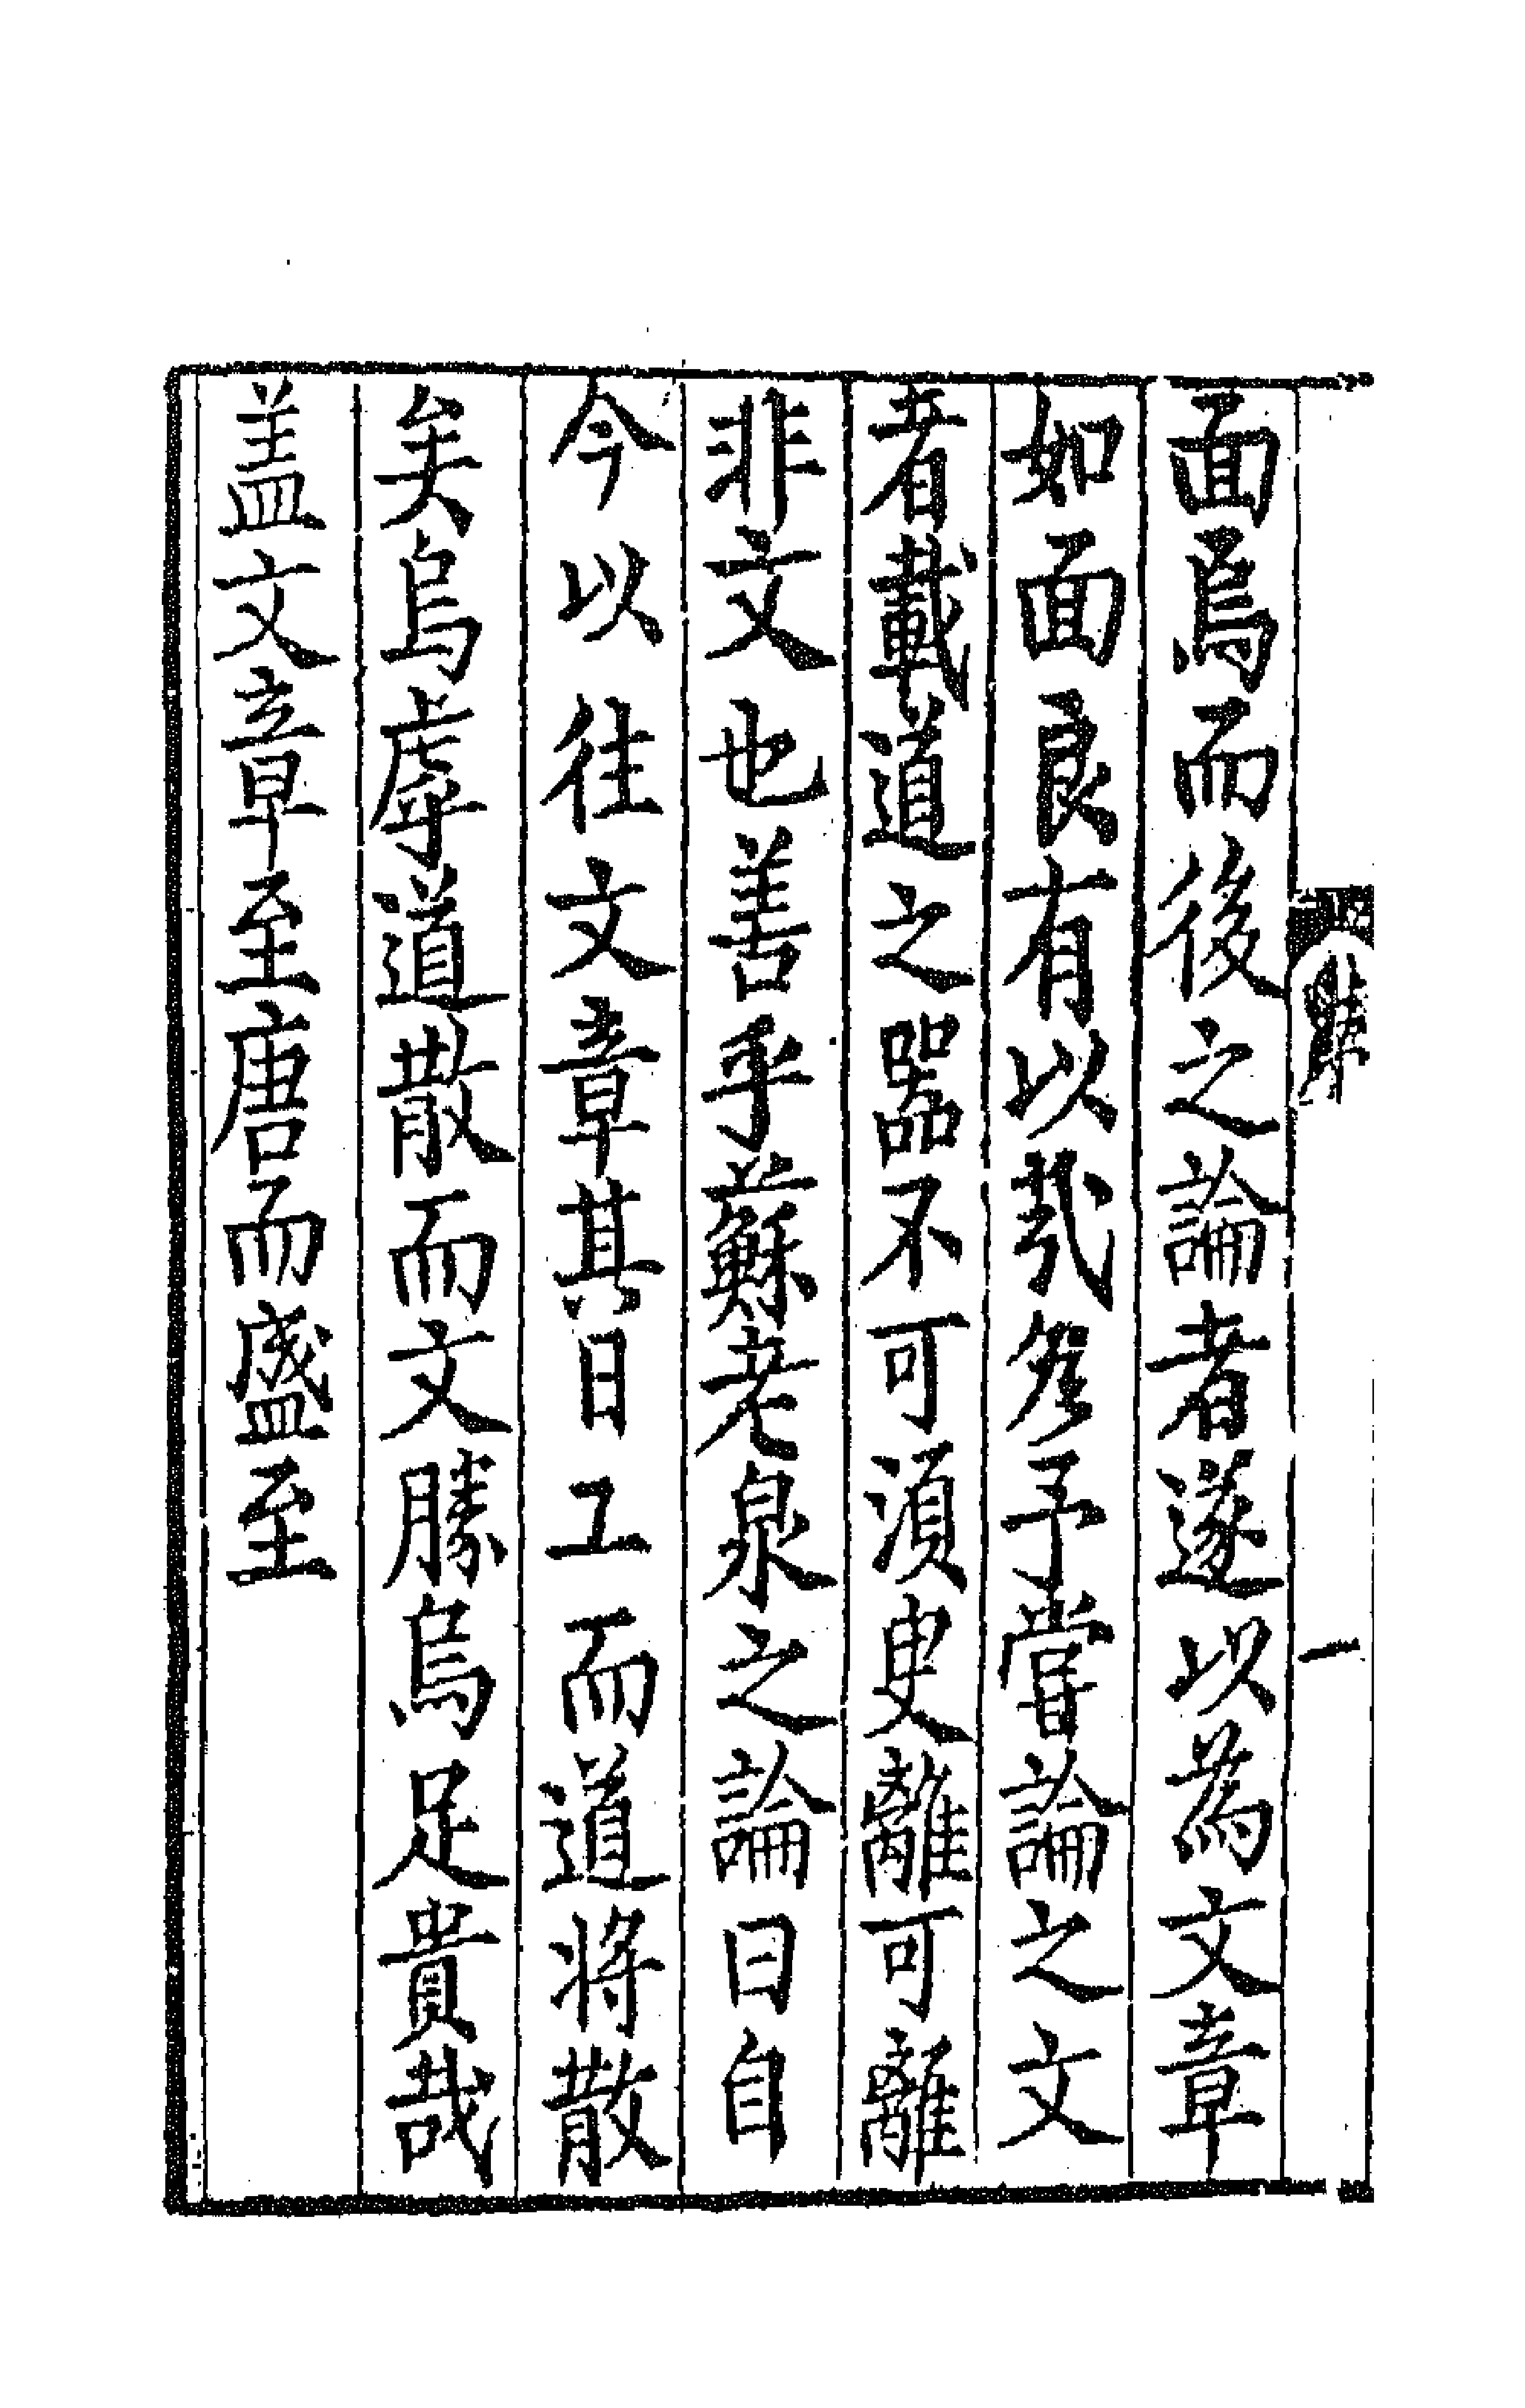 一
面焉而後之論者遂以為文章
如面良有以哉予嘗論之文
者載道之器不可須臾離可離
非文也善乎蘇老泉之論曰自
今以往文章其日工而道將散
矣烏虖道散而文勝烏足貴哉
盖文章至唐而盛至